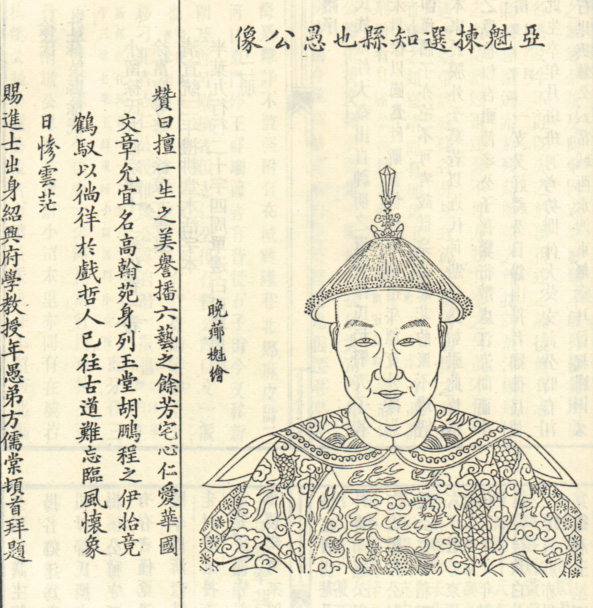 亞魁揀選知縣也愚公像
晚薌樾繪
贊曰擅三生之美譽播六藝之餘芳宅心仁愛華國
文章允宜名高翰苑身列玉堂胡鵬程之伊怡竟
鶴馭以徜徉於戲哲人已往古道難忘臨風懷象
日慘雲茫
賜進士出身紹興府學教授年愚弟方儒棠頓首拜題